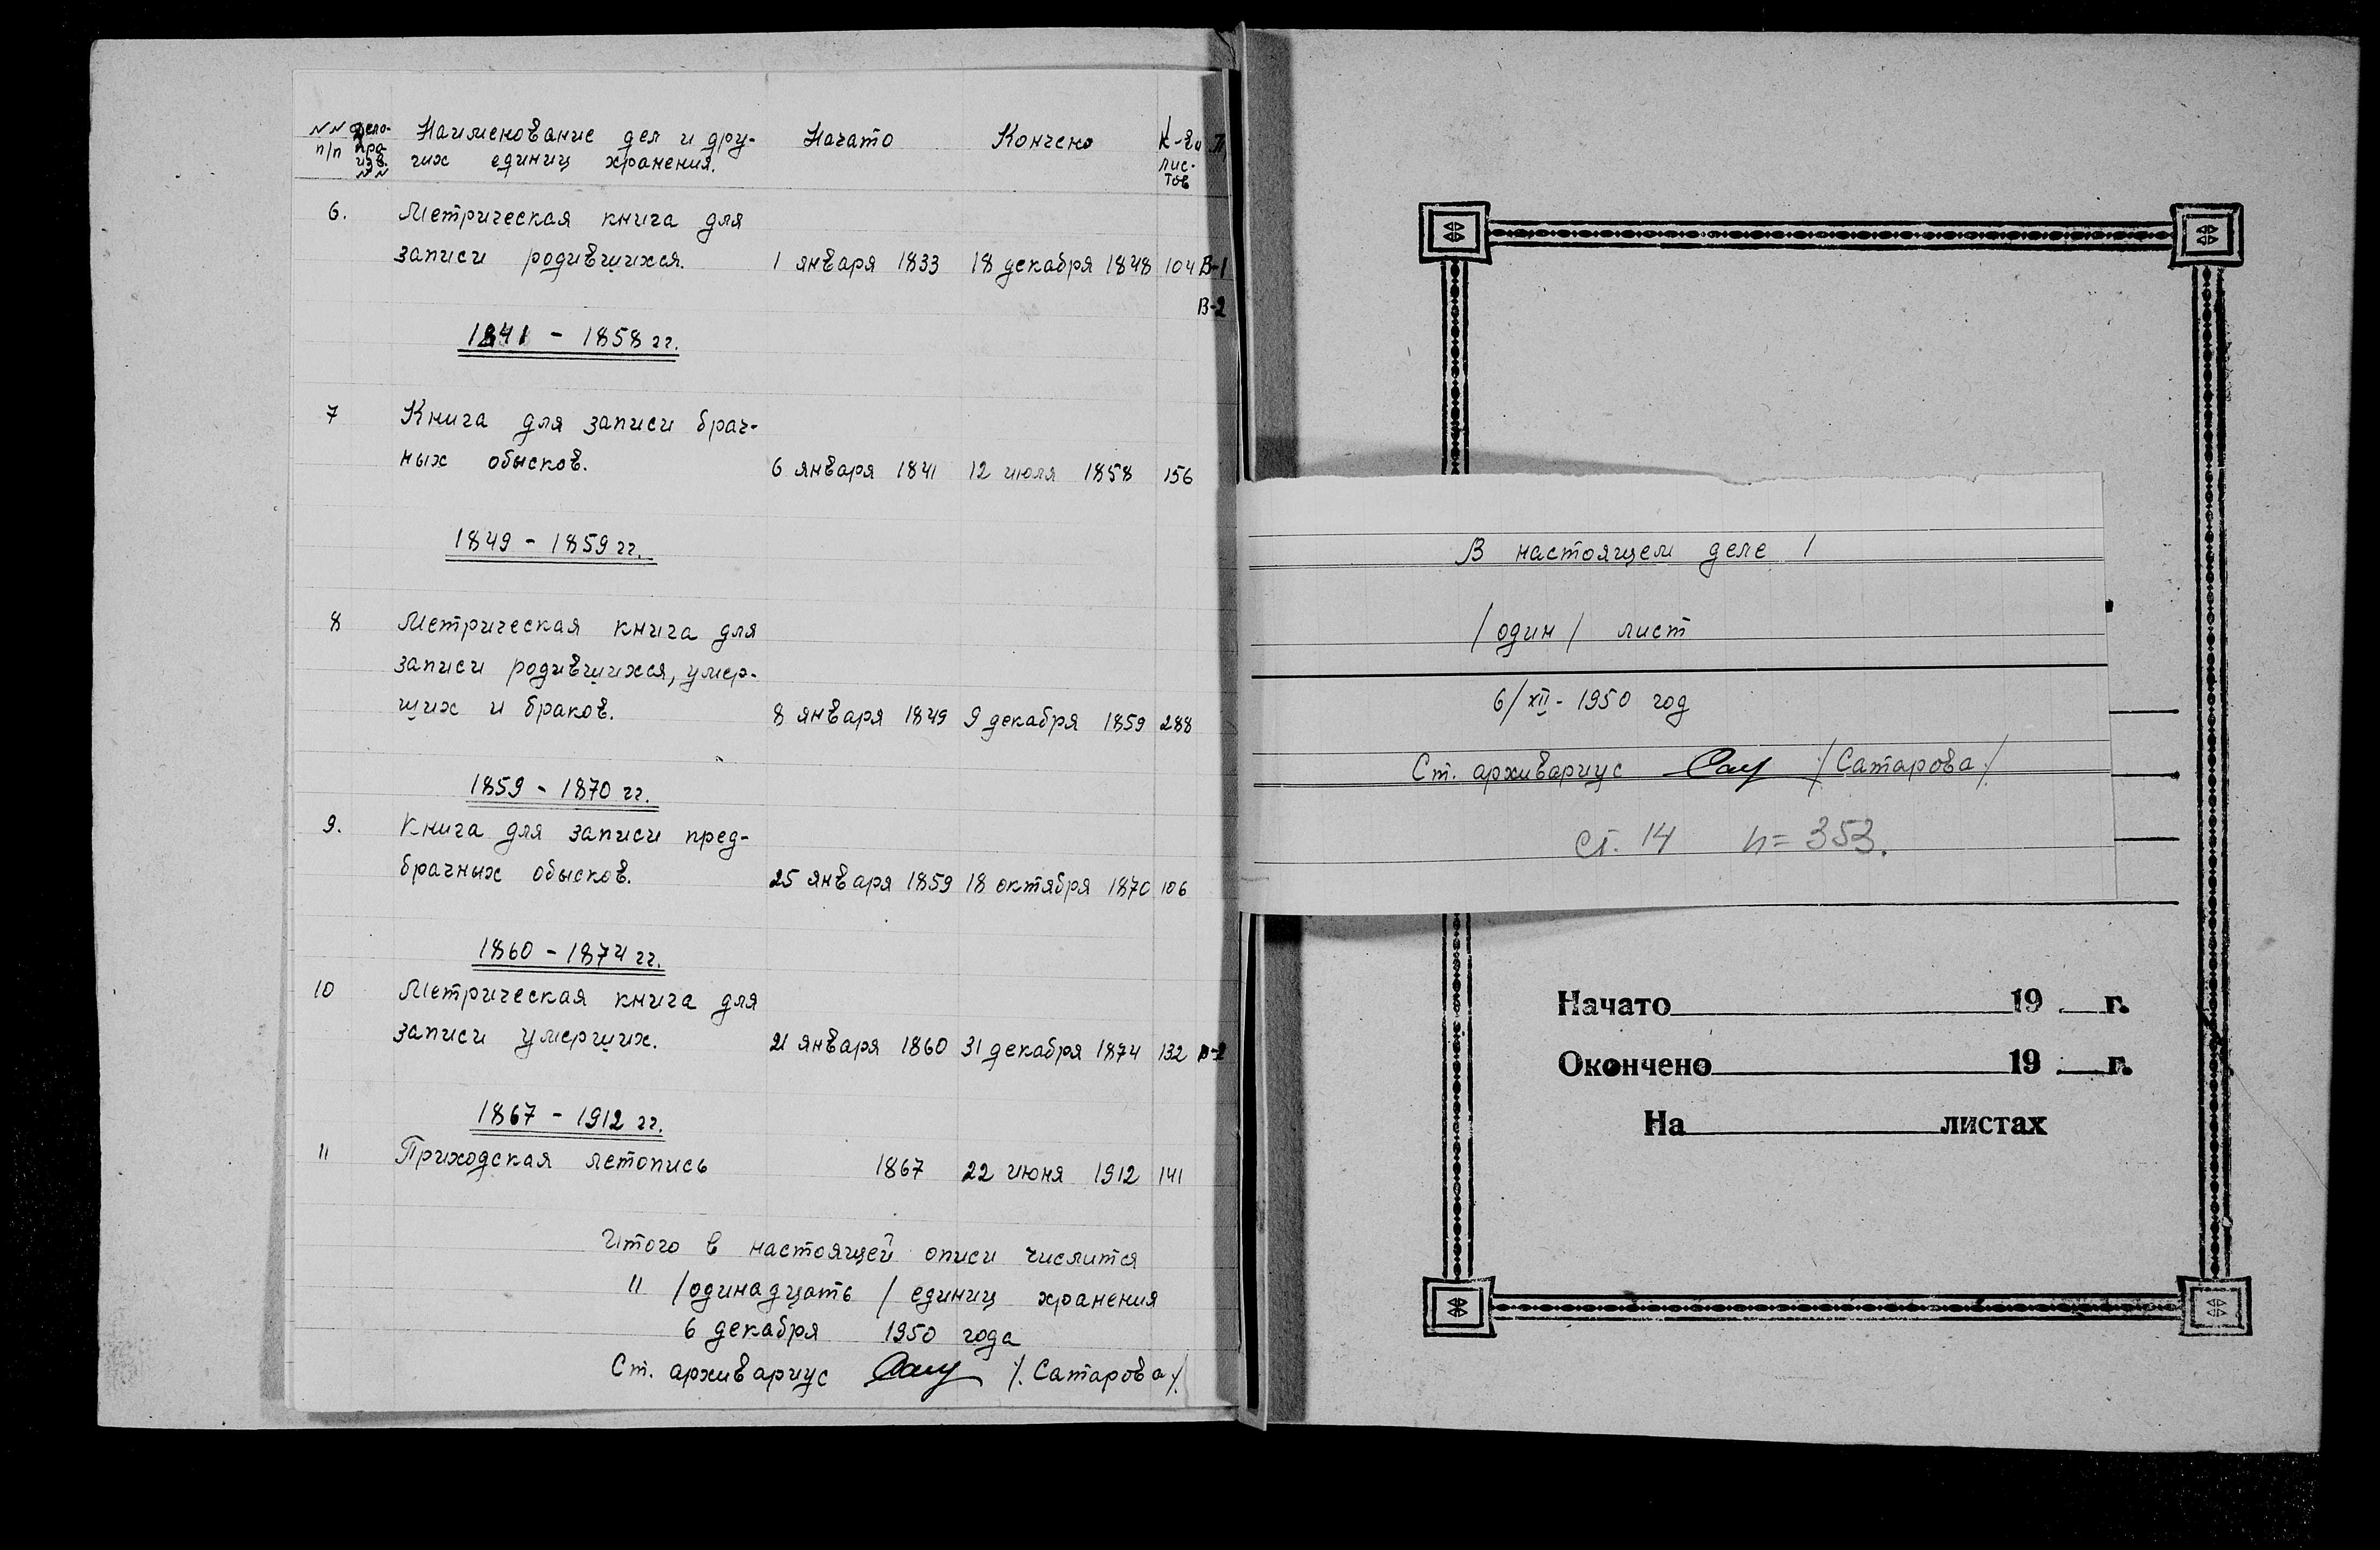 NN п/п делопроизв. NN Наименование дел и дру- Начато Кончено к-во
гих единиц хранения. лис-
тов
6. Метрическая книга для
записи родившихся. 1 января 1833 18 декабря 1848 104 В-1
В-2
1841 - 1858 гг.
7 Книга для записи брач-
ных обысков. 6 января 1841 12 июля 1858 156
1849 - 1859 гг.
8 Метрическая книга для
записи родившихся, умер-
ших и браков. 8 января 1849 9 декабря 1859 288
1859 - 1870 гг.
9. Книга для записи пред-
брачных обысков. 25 января 1859 18 октября 1870 106
1860 - 1874 гг.
10 Метрическая книга для
записи умерших. 21 января 1860 31 декабря 1874 132 В-2
1867 - 1912 гг.
11 Приходская летопись 1867 22 июня 1912 141
Итого в настоящей описи числится
11 /одинадцать/ единиц хранения
6 декабря 1950 года
Ст. архивариус /.Сатарова/.
В настоящем деле 1
/один/ лист
6/XII - 1950 год
Ст. архивариус /Сатарова/.
ст. 14 n = 353.
Начато 19 г.
Окончено 19 г.
На листах